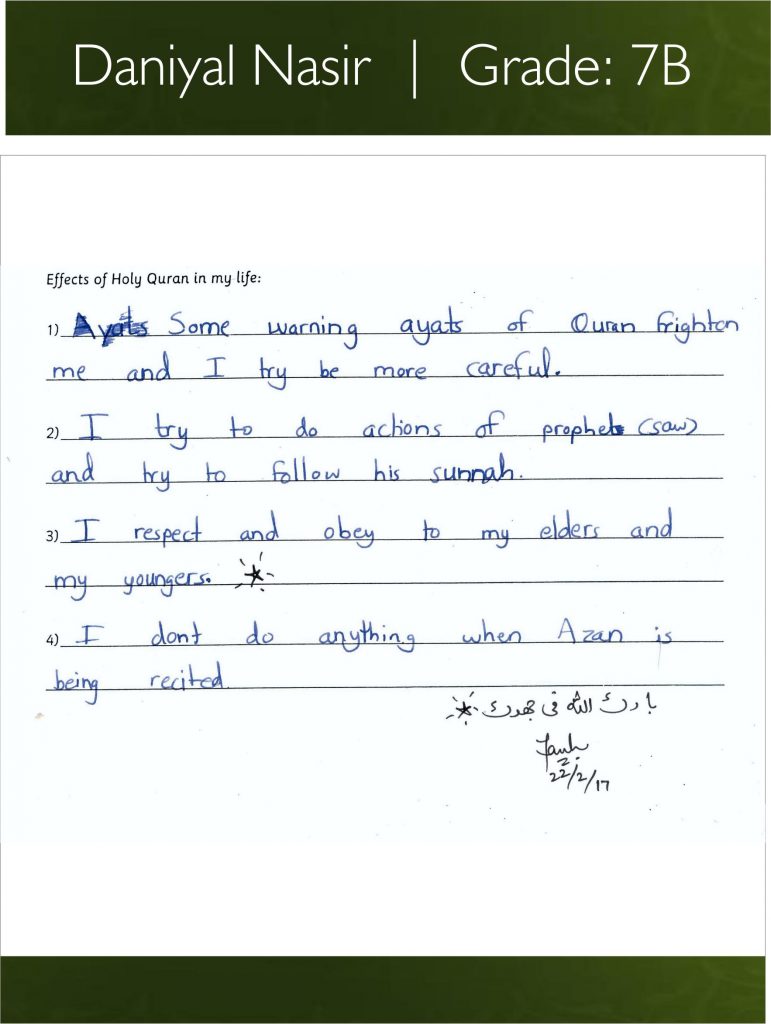 Daniyal Nasir | Grade: 7B
Effects of Holy Quran in my life:
1) Ayats Some warning ayats of Quran frighton
me and I try be more careful.
2) I try to do actions of prophet (saw)
and try to follow his sunnah.
3) I respect and obey to my elders and
my youngers.
4) I dont do anything when Azan is
being recited
بارك الله في جهدك
22/2/17